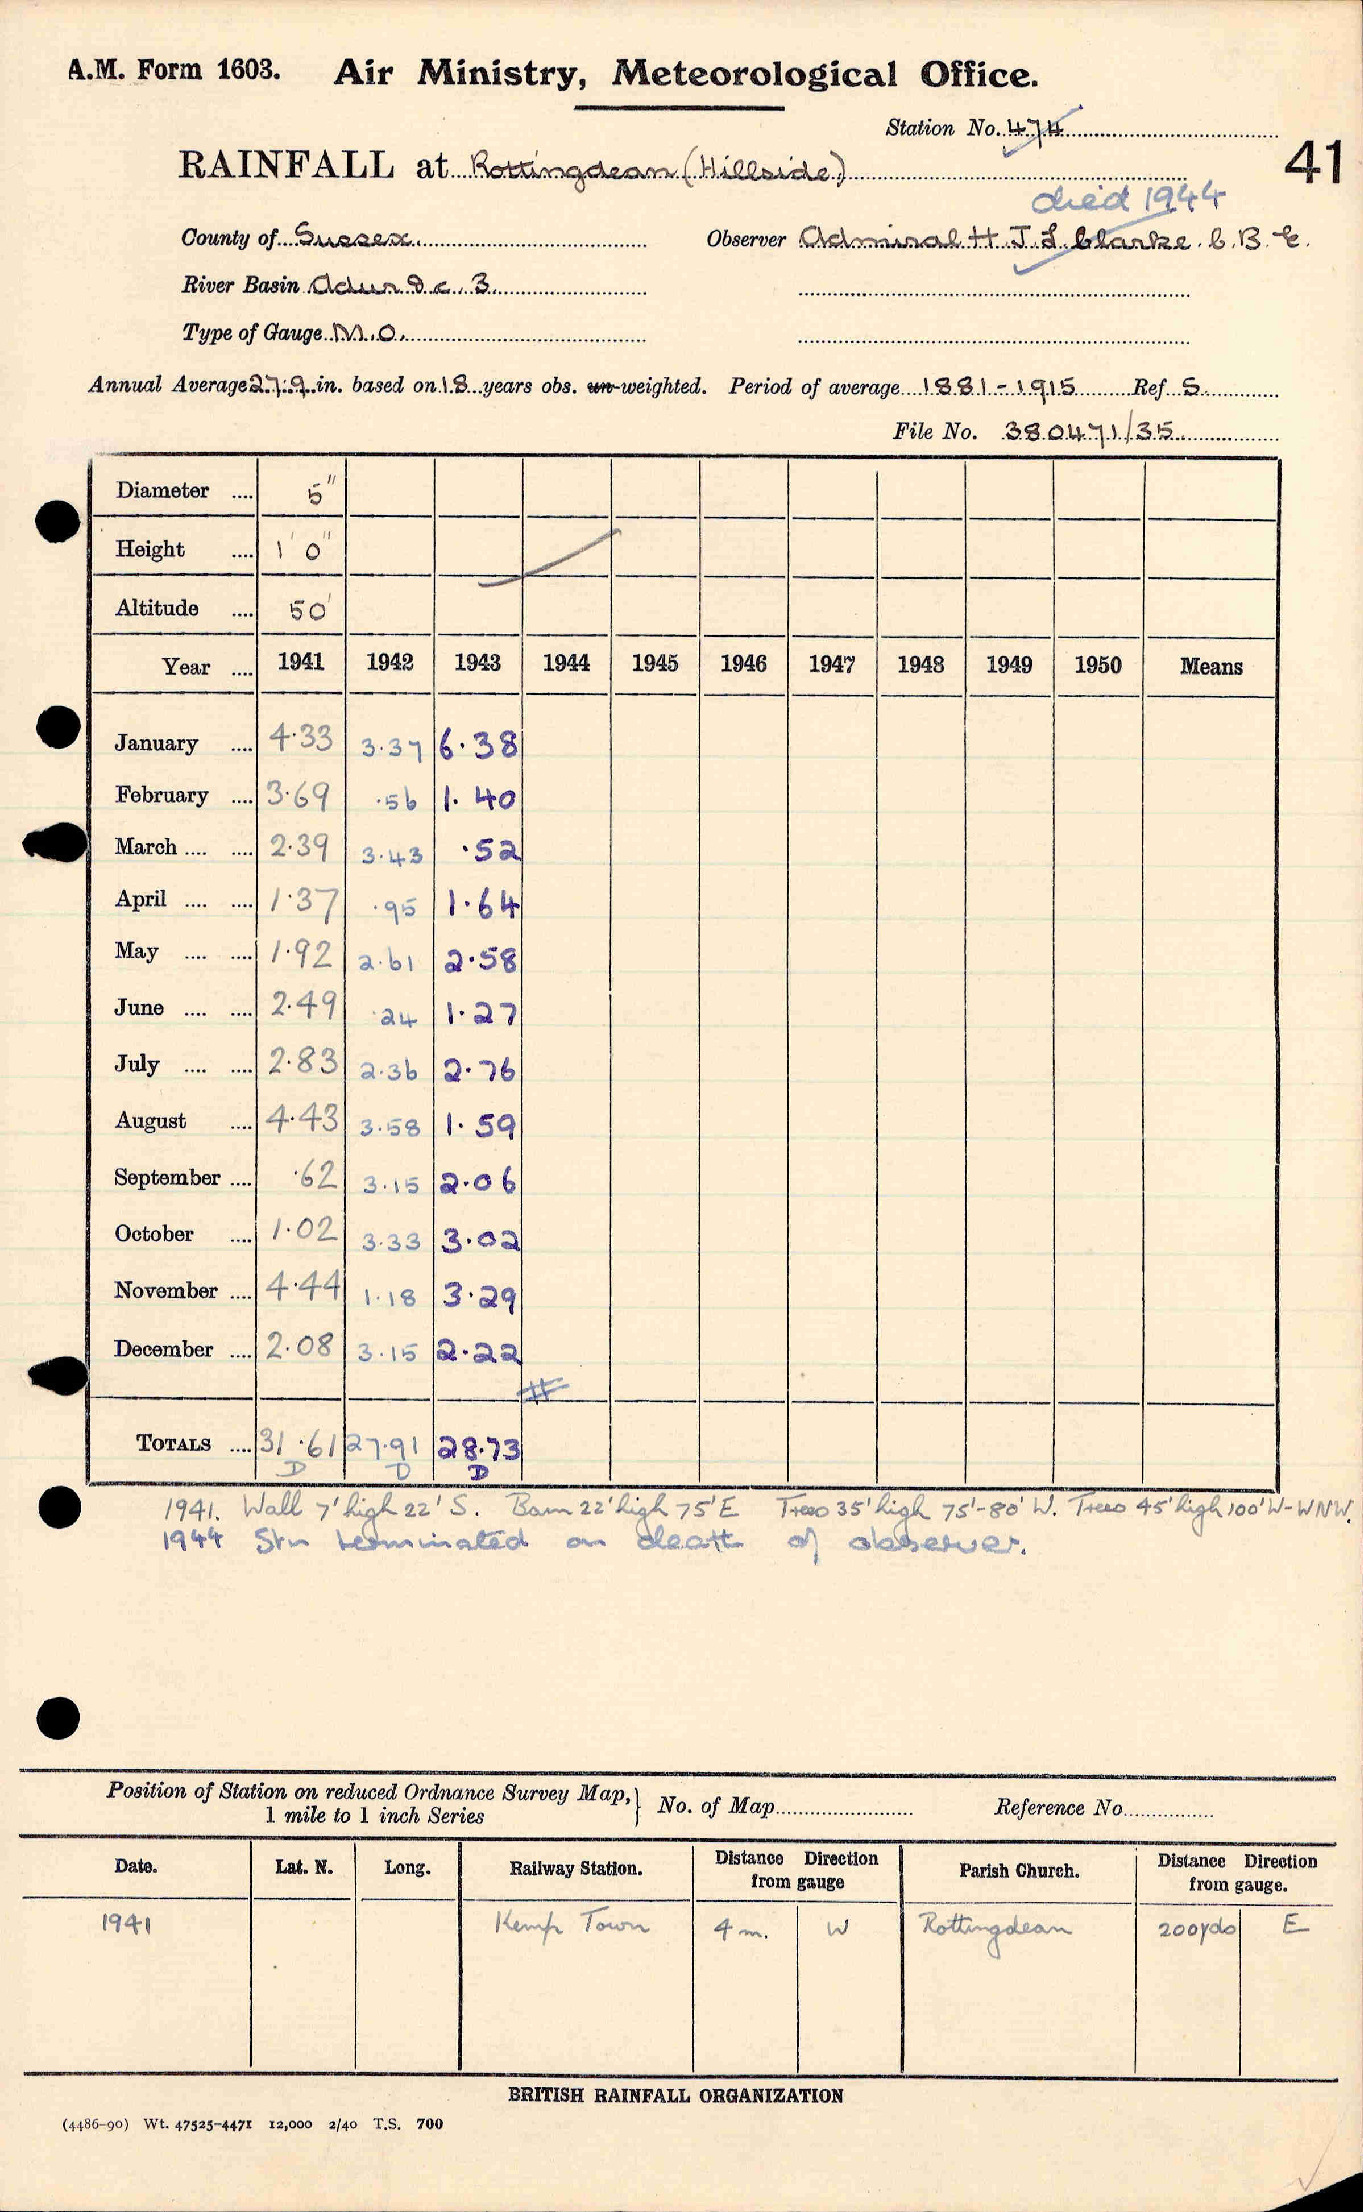 A.M. Form 1603. Air Ministry, Meteorological Office.
Station No. 474
41
RAINFALL at Rottingdean (Hillside)
died 1944
County of Sussex. Observer Admiral H. J. L. Clarke. C. B. E.
River Basin Adur &c. 3.
Type of Gauge M.O.
Annual Average 27.9 in. based on 18 years obs. un-weighted. Period of average 1881-1915 Ref S.
File No. 380471/35
Diameter .... 5"
Height .... 1' 0"
Altitude .... 50'
Year .... 1941 1942 1943 1944 1945 1946 1947 1948 1949 1950 Means
January .... 4.33 3.37 6.38
February .... 3.69 .56 1.40
March .... .... 2.39 3.43 .52
April .... .... 1.37 .95 1.64
May .... .... 1.92 2.61 2.58
June .... .... 2.49 .24 1.27
July .... .... 2.83 2.36 2.76
August .... 4.43 3.58 1.59
September .... .62 3.15 2.06
October .... 1.02 3.33 3.02
November .... 4.44 1.18 3.29
December .... 2.08 3.15 2.22
TOTALS .... 31.61 27.91 28.73
D D D
1941. Wall 7' high 22' S. Barn 22' high 75' E Trees 35' high 75'-80' W. Trees 45' high 100' W-WNW.
1944 Stn terminated on death of observer.
Position of Station on reduced Ordnance Survey Map, 1 mile to 1 inch Series } No. of Map Reference No.
Date. Lat. N. Long. Railway Station. Distance Direction from gauge Parish Church. Distance Direction from gauge.
1941 Kemp Town 4 m. W Rottingdean 200yds E
BRITISH RAINFALL ORGANIZATION
(4486-90) Wt. 47525-4471 12,000 2/40 T.S. 700